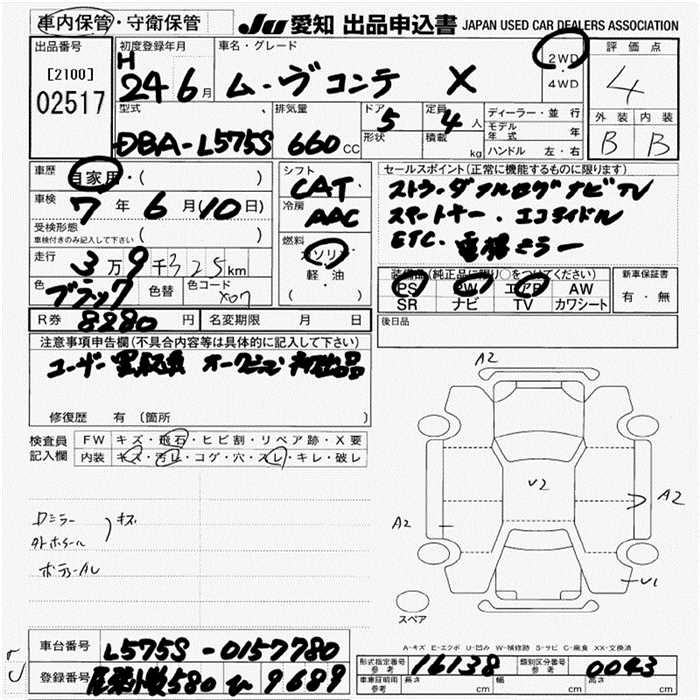 車内保管・守衛保管
JU 愛知 出品申込書 JAPAN USED CAR DEALERS ASSOCIATION
出品番号
[2100]
02517
初度登録年月
H
24 6月
車名・グレード
ム-ヴコンテ X
2WD
・
4WD
評価点
4
外装 内装
B B
型式
DBA-L575S
排気量
660 CC
ドア 5
形状
定員 4 人
積載 kg
ディーラー・並行
モデル年式 年
ハンドル 左・右
車歴
自家用・( )
車検
7年 6月(10日)
受検形態
車検付きのみ記入して下さい ( )
走行
3万9千325km
色
ブラック
色替
色コード
X07
シフト
CAT
冷房
AAC
燃料
ガソリン
軽・油
( )
セールスポイント(正常に機能するものに限ります)
ストラーダフルセグナビTV
スマートキー・エコアイドル
ETC・電格ミラー
装備品(純正品に限り○をつけてください)
PS PW エアB AW
SR ナビ TV カワシート
新車保証書
有・無
後日品
R券 8280 円
名変期限 月 日
注意事項申告欄(不具合内容等は具体的に記入して下さい)
修復歴 有 (箇所 )
検査員
記入欄
FW キズ・飛石・ヒビ割・リペア跡・X要
内装 キズ・汚レ・コゲ・穴・スレ・キレ・破レ
Dミラー
外ホイール
キズ
A2
V2
A2
A2
V1
スペア
A-キズ E-エクボ U-凹み W-補修跡 S-サビ C-腐食 XX-交換済
車台番号 L575S-0157780
登録番号 尾張小牧580 ひ 9689
形式指定番号
参考
16138
類別区分番号
参考
0043
車庫証明用
参考
長さ cm 幅 cm 高さ cm